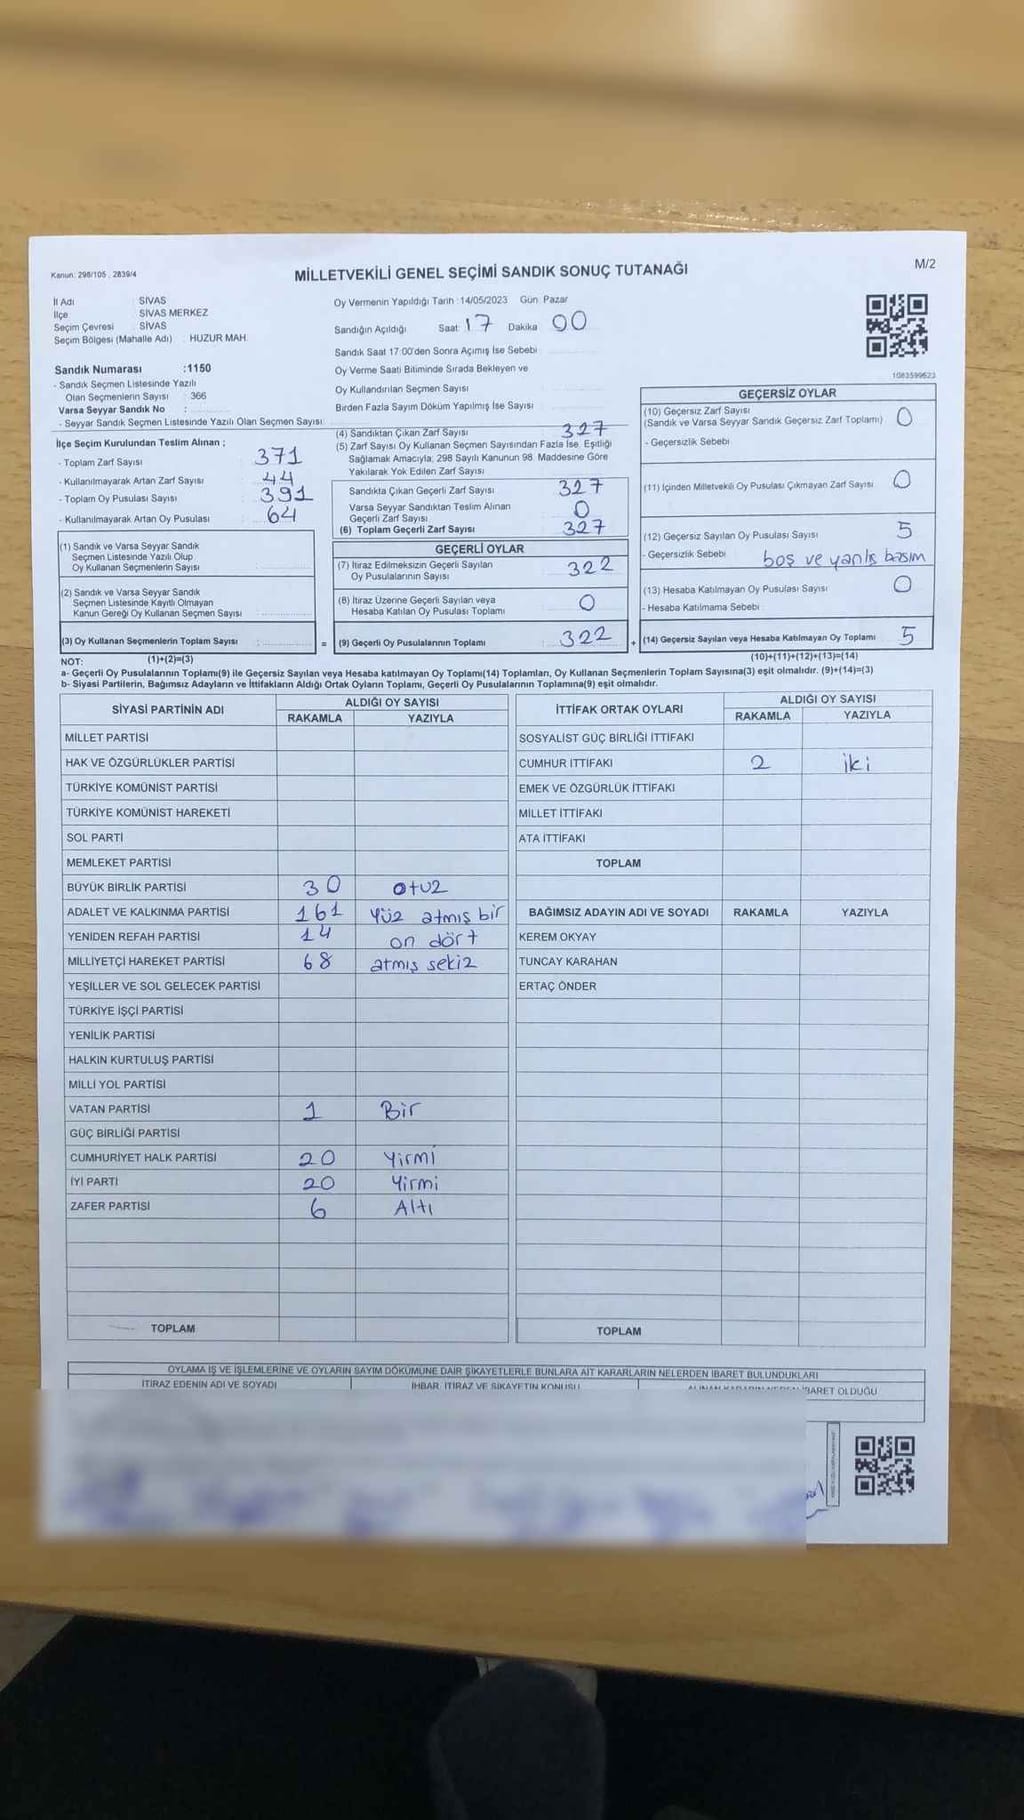 Kanun: 298/105 , 2839/4
MİLLETVEKİLİ GENEL SEÇİMİ SANDIK SONUÇ TUTANAĞI
M/2
İl Adı : SİVAS
İlçe : SİVAS MERKEZ
Seçim Çevresi : SİVAS
Seçim Bölgesi (Mahalle Adı) : HUZUR MAH.
Oy Vermenin Yapıldığı Tarih :14/05/2023 Gün: Pazar
Sandığın Açıldığı Saat: 17 Dakika 00
Sandık Saat 17:00'den Sonra Açımış İse Sebebi
Oy Verme Saati Bitiminde Sırada Bekleyen ve
Oy Kullandırılan Seçmen Sayısı
Birden Fazla Sayım Döküm Yapılmış İse Sayısı
1083599623
Sandık Numarası :1150
- Sandık Seçmen Listesinde Yazılı
Olan Seçmenlerin Sayısı : 366
Varsa Seyyar Sandık No :
- Seyyar Sandık Seçmen Listesinde Yazılı Olan Seçmen Sayısı:
İlçe Seçim Kurulundan Teslim Alınan ;
- Toplam Zarf Sayısı 371
- Kullanılmayarak Artan Zarf Sayısı 44
- Toplam Oy Pusulası Sayısı 391
- Kullanılmayarak Artan Oy Pusulası 64
(1) Sandık ve Varsa Seyyar Sandık
Seçmen Listesinde Yazılı Olup
Oy Kullanan Seçmenlerin Sayısı
(2) Sandık ve Varsa Seyyar Sandık
Seçmen Listesinde Kayıtlı Olmayan
Kanun Gereği Oy Kullanan Seçmen Sayısı
(3) Oy Kullanan Seçmenlerin Toplam Sayısı =
(1)+(2)=(3)
(4) Sandıktan Çıkan Zarf Sayısı 327
(5) Zarf Sayısı Oy Kullanan Seçmen Sayısından Fazla İse, Eşitliği
Sağlamak Amacıyla; 298 Sayılı Kanunun 98. Maddesine Göre
Yakılarak Yok Edilen Zarf Sayısı
Sandıkta Çıkan Geçerli Zarf Sayısı 327
Varsa Seyyar Sandıktan Teslim Alınan
Geçerli Zarf Sayısı 0
(6) Toplam Geçerli Zarf Sayısı 327
GEÇERLİ OYLAR
(7) İtiraz Edilmeksizin Geçerli Sayılan
Oy Pusulalarının Sayısı 322
(8) İtiraz Üzerine Geçerli Sayılan veya
Hesaba Katılan Oy Pusulası Toplamı 0
(9) Geçerli Oy Pusulalarının Toplamı 322 +
GEÇERSİZ OYLAR
(10) Geçersiz Zarf Sayısı
(Sandık ve Varsa Seyyar Sandık Geçersiz Zarf Toplamı) 0
- Geçersizlik Sebebi
(11) İçinden Milletvekili Oy Pusulası Çıkmayan Zarf Sayısı 0
(12) Geçersiz Sayılan Oy Pusulası Sayısı 5
- Geçersizlik Sebebi boş ve yanlış basım
(13) Hesaba Katılmayan Oy Pusulası Sayısı 0
- Hesaba Katılmama Sebebi
(14) Geçersiz Sayılan veya Hesaba Katılmayan Oy Toplamı 5
(10)+(11)+(12)+(13)=(14)
NOT:
a- Geçerli Oy Pusulalarının Toplamı(9) ile Geçersiz Sayılan veya Hesaba katılmayan Oy Toplamı(14) Toplamları, Oy Kullanan Seçmenlerin Toplam Sayısına(3) eşit olmalıdır. (9)+(14)=(3)
b- Siyasi Partilerin, Bağımsız Adayların ve İttifakların Aldığı Ortak Oyların Toplamı, Geçerli Oy Pusulalarının Toplamına(9) eşit olmalıdır.
SİYASİ PARTİNİN ADI ALDIĞI OY SAYISI
RAKAMLA YAZIYLA
MİLLET PARTİSİ
HAK VE ÖZGÜRLÜKLER PARTİSİ
TÜRKİYE KOMÜNİST PARTİSİ
TÜRKİYE KOMÜNİST HAREKETİ
SOL PARTİ
MEMLEKET PARTİSİ
BÜYÜK BİRLİK PARTİSİ 30 otuz
ADALET VE KALKINMA PARTİSİ 161 Yüz atmış bir
YENİDEN REFAH PARTİSİ 14 on dört
MİLLİYETÇİ HAREKET PARTİSİ 68 atmış sekiz
YEŞİLLER VE SOL GELECEK PARTİSİ
TÜRKİYE İŞÇİ PARTİSİ
YENİLİK PARTİSİ
HALKIN KURTULUŞ PARTİSİ
MİLLİ YOL PARTİSİ
VATAN PARTİSİ 1 Bir
GÜÇ BİRLİĞİ PARTİSİ
CUMHURİYET HALK PARTİSİ 20 Yirmi
İYİ PARTİ 20 Yirmi
ZAFER PARTİSİ 6 Altı
TOPLAM
İTTİFAK ORTAK OYLARI ALDIĞI OY SAYISI
RAKAMLA YAZIYLA
SOSYALİST GÜÇ BİRLİĞİ İTTİFAKI
CUMHUR İTTİFAKI 2 iki
EMEK VE ÖZGÜRLÜK İTTİFAKI
MİLLET İTTİFAKI
ATA İTTİFAKI
TOPLAM
BAĞIMSIZ ADAYIN ADI VE SOYADI RAKAMLA YAZIYLA
KEREM OKYAY
TUNCAY KARAHAN
ERTAÇ ÖNDER
TOPLAM
OYLAMA İŞ VE İŞLEMLERİNE VE OYLARIN SAYIM DÖKÜMÜNE DAİR ŞİKAYETLERLE BUNLARA AİT KARARLARIN NELERDEN İBARET BULUNDUKLARI
İTİRAZ EDENİN ADI VE SOYADI İHBAR, İTİRAZ VE ŞİKAYETİN KONUSU İBARET OLDUĞU